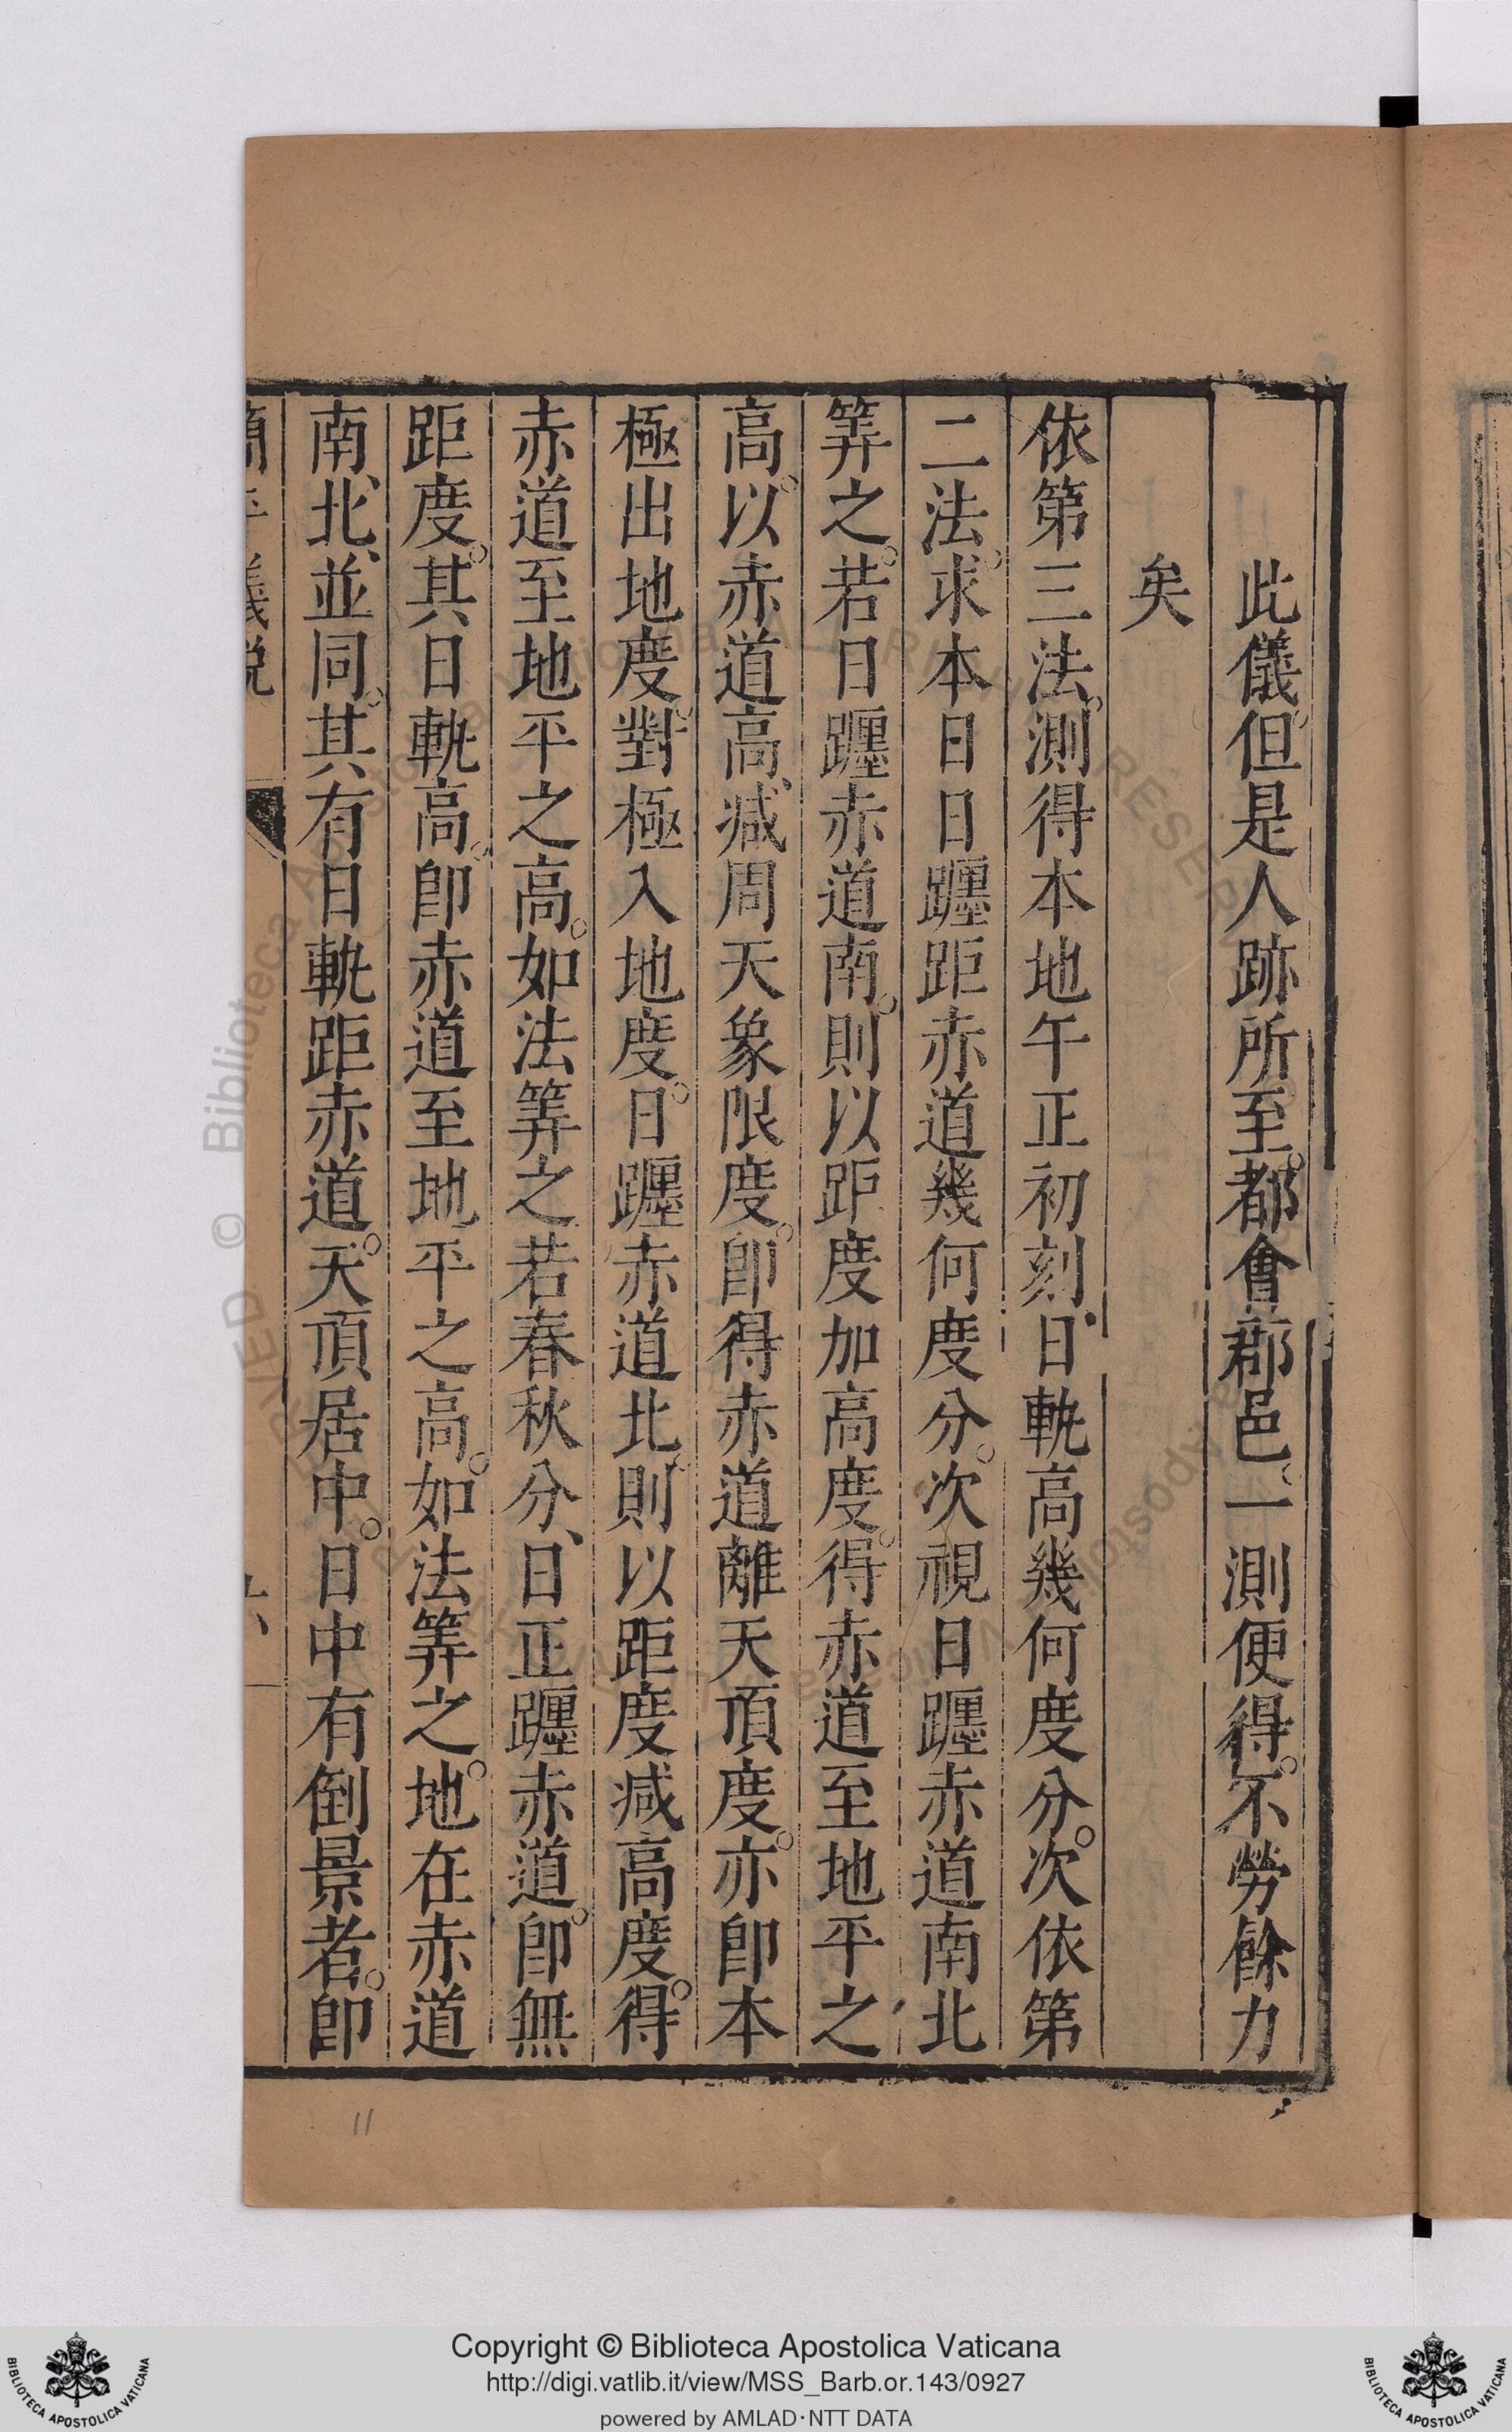 此儀。但是人跡所至。都會郡邑。一測便得。不勞餘力
矣
依第三法。測得本地午正初刻、日軌高幾何度分。次依第
二法。求本日日躔距赤道幾何度分。次視日躔赤道南北
筭之。若日躔赤道南。則以距度加高度。得赤道至地平之
高。以赤道高、减周天象限度。卽得赤道離天頂度。亦卽本
極出地度。對極入地度。日躔赤道北。則以距度减高度。得
赤道至地平之高。如法筭之。若春秋分、日正躔赤道。卽無
距度。其日軌高。卽赤道至地平之高。如法筭之。地在赤道
南、北、並同。其有日軌距赤道。天頂居中。日中有倒景者。卽
簡平儀說
六
11
© Biblioteca Apostolica Vaticana
Copyright © Biblioteca Apostolica Vaticana
http://digi.vatlib.it/view/MSS_Barb.or.143/0927
powered by AMLAD·NTT DATA
BIBLIOTECA APOSTOLICA VATICANA
BIBLIOTECA APOSTOLICA VATICANA